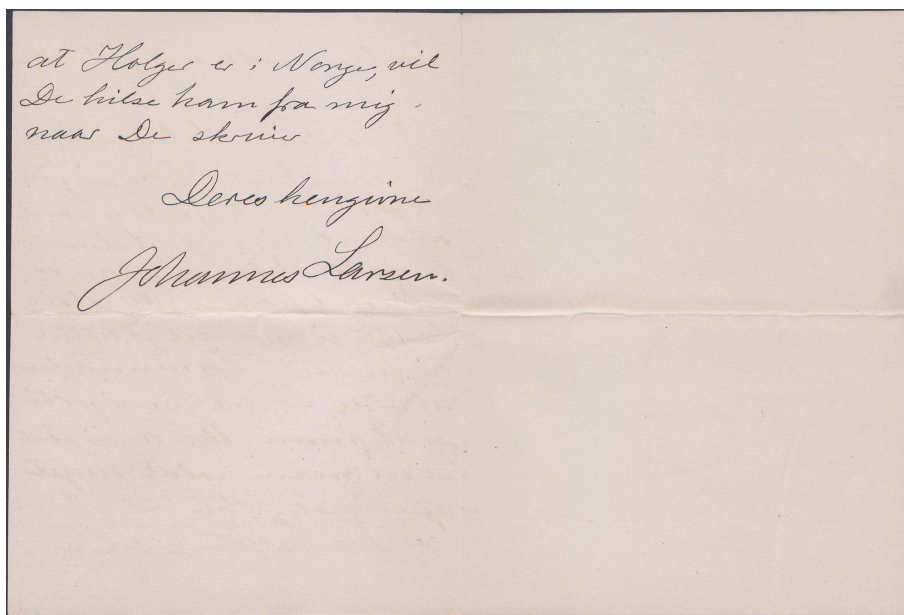 at Holger er i Norge, vil
De hilse ham fra mig
naar De skriver
Deres hengivne
Johannes Larsen.